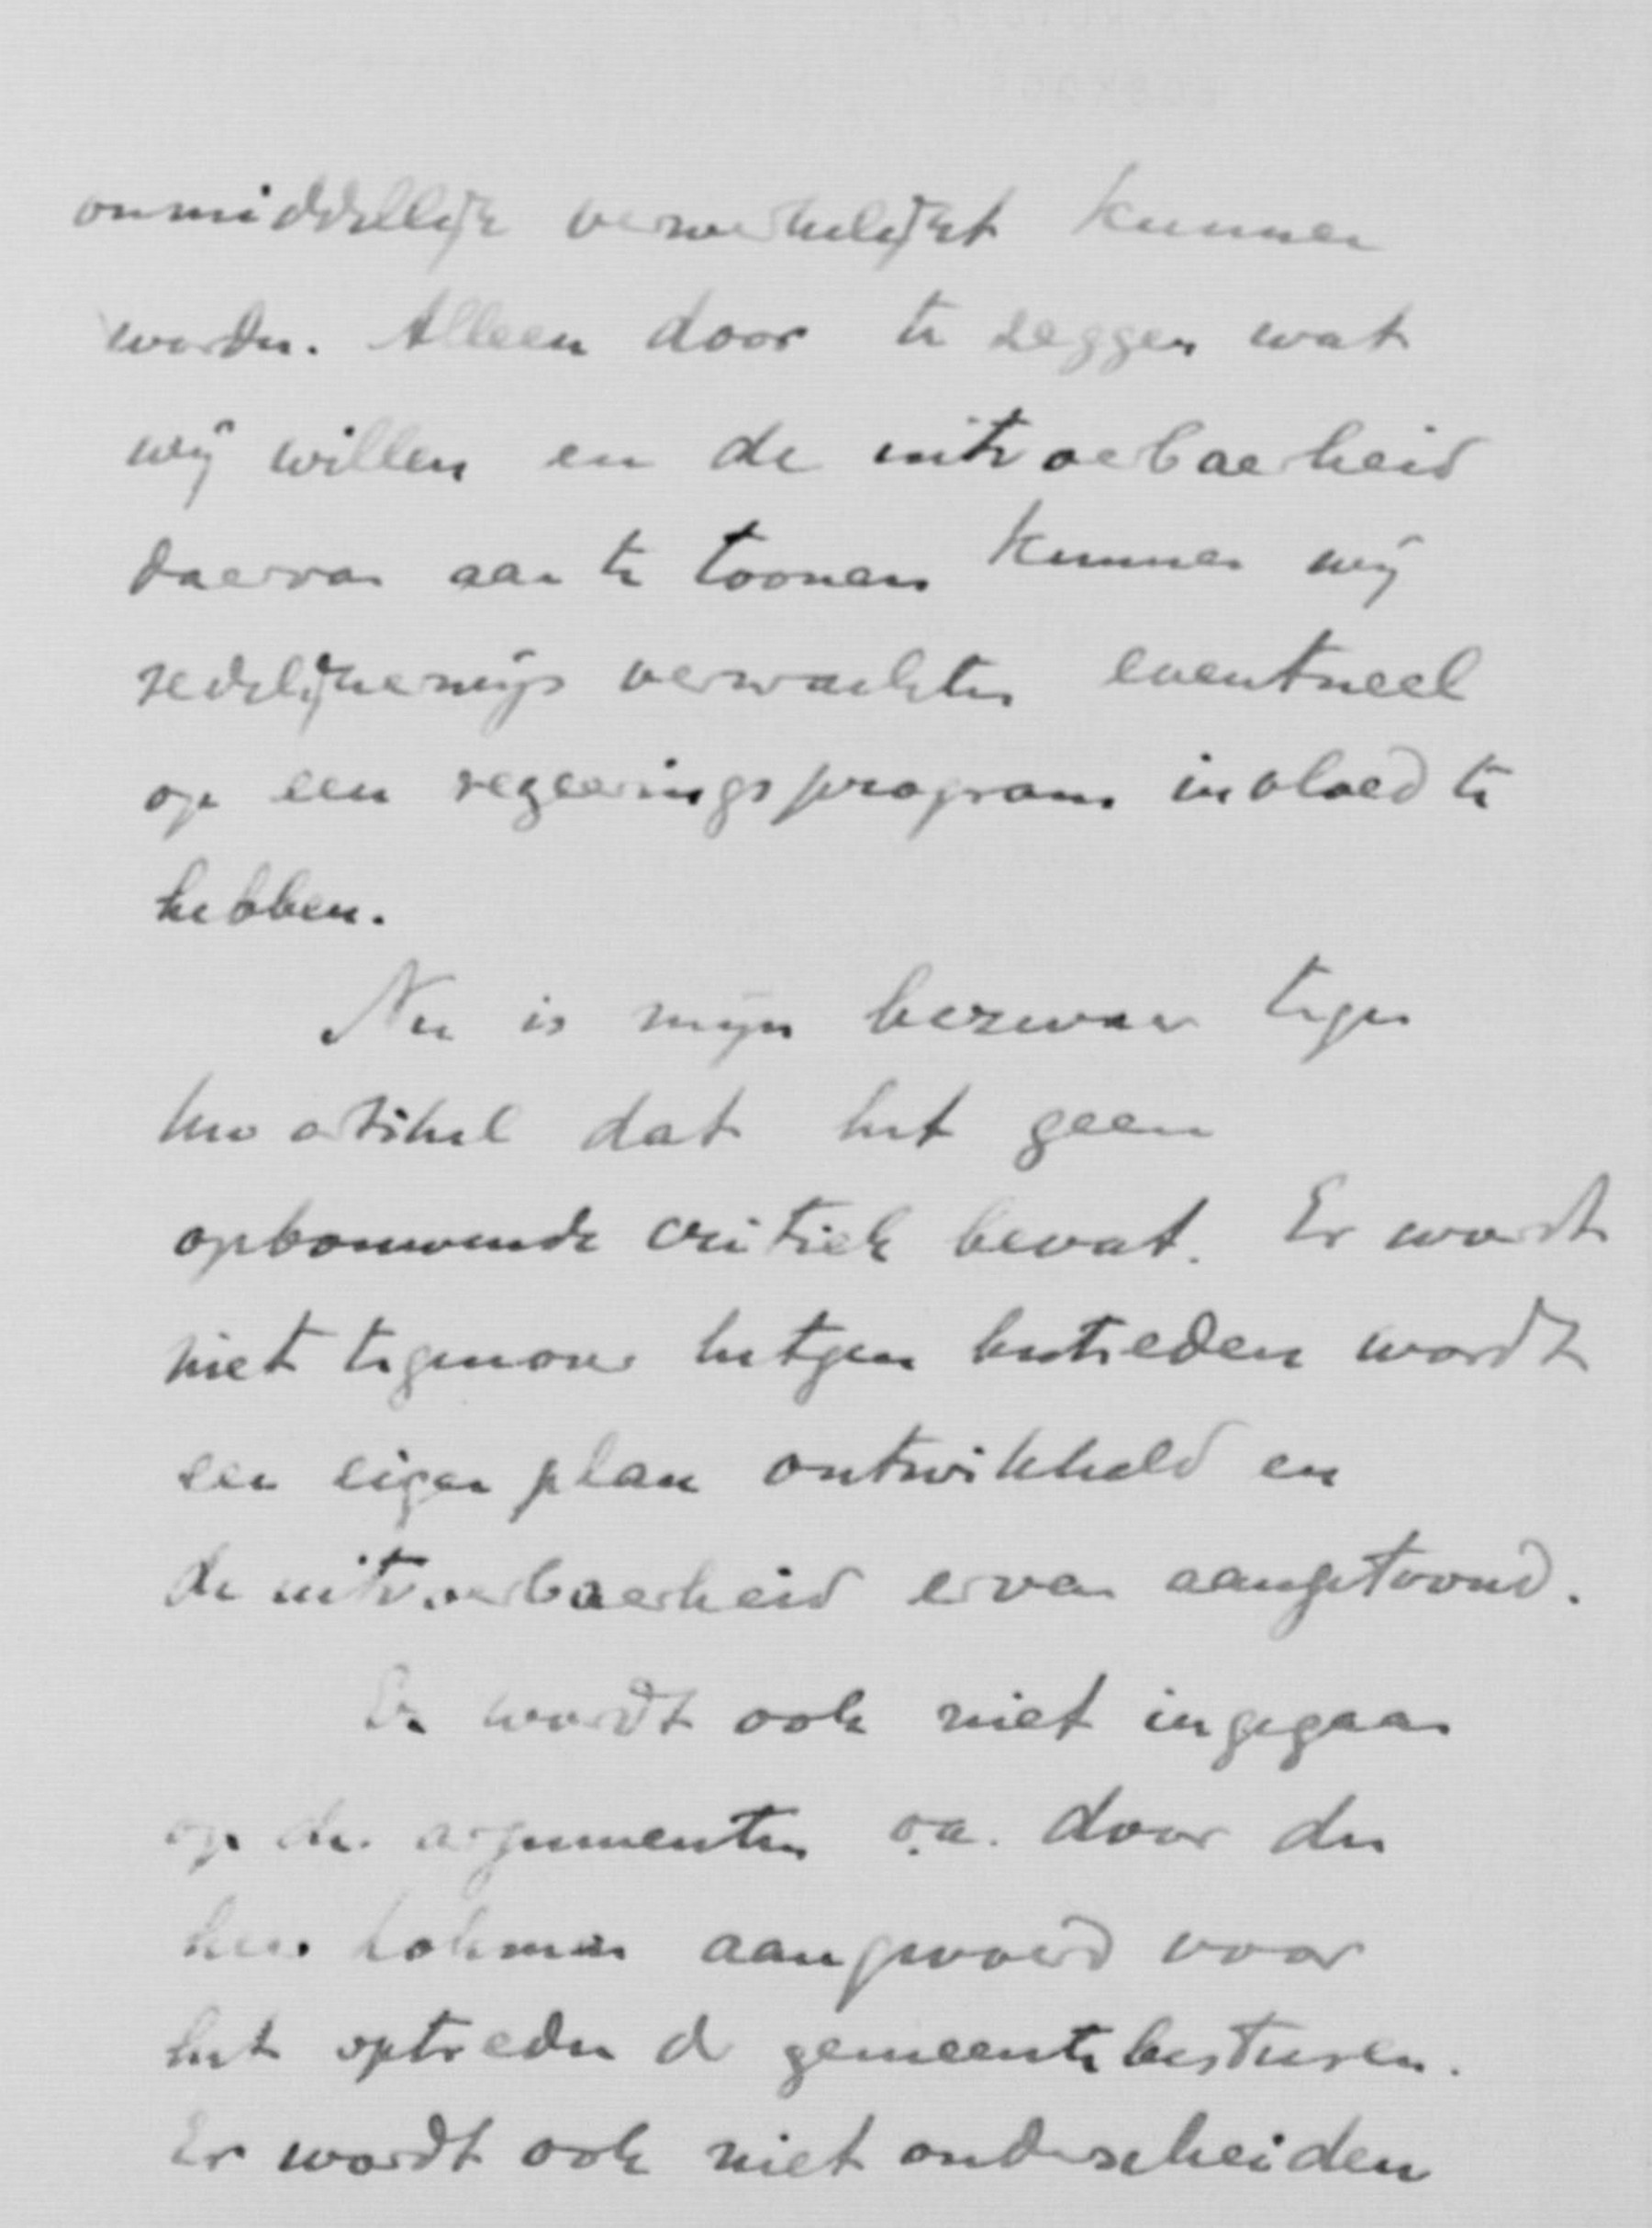 onmiddellijk verwerkelijkt kunnen
worden. Alleen door te zeggen wat
wij willen en de uitvoerbaarheid
daarvan aan te toonen kunnen wij
redelijkerwijs verwachten eventueel
op een regeeringsprogram invloed te
hebben.
Nu is mijn bezwaar tegen
Uw artikel dat het geen
opbouwende critiek bevat. Er wordt
niet tegenover hetgeen bestreden wordt
een eigen plan ontwikkeld en
de uitvoerbaarheid ervan aangetoond.
Er wordt ook niet ingegaan
op de argumenten o.a. door den
heer Lohman aangevoerd voor
het optreden d gemeentebesturen.
Er wordt ook niet onderscheiden